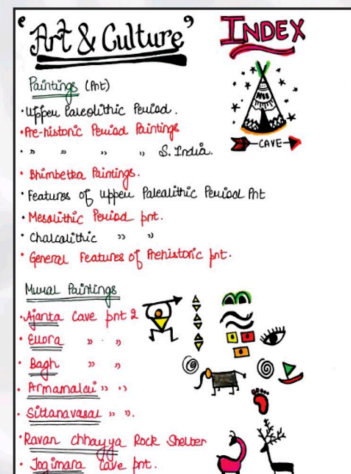 'Art & Culture'
INDEX
Paintings (Ant)
• Upper Paleolithic Period.
• Pre-historic Period Paintings
• " " " " S. India.
• Bhimbetka Paintings.
• Features of Upper Palealithic Period Pnt
• Mesolithic Period pnt.
• Chalcolithic " "
• General Features of Prehistoric pnt.
CAVE
Mural Paintings
• Ajanta Cave pnt 2
• Ellora " "
• Bagh " "
• Armamalai " "
• Sittanavasal " ".
• Ravan chhayya Rock Shelter
• Jogimara Cave pnt.